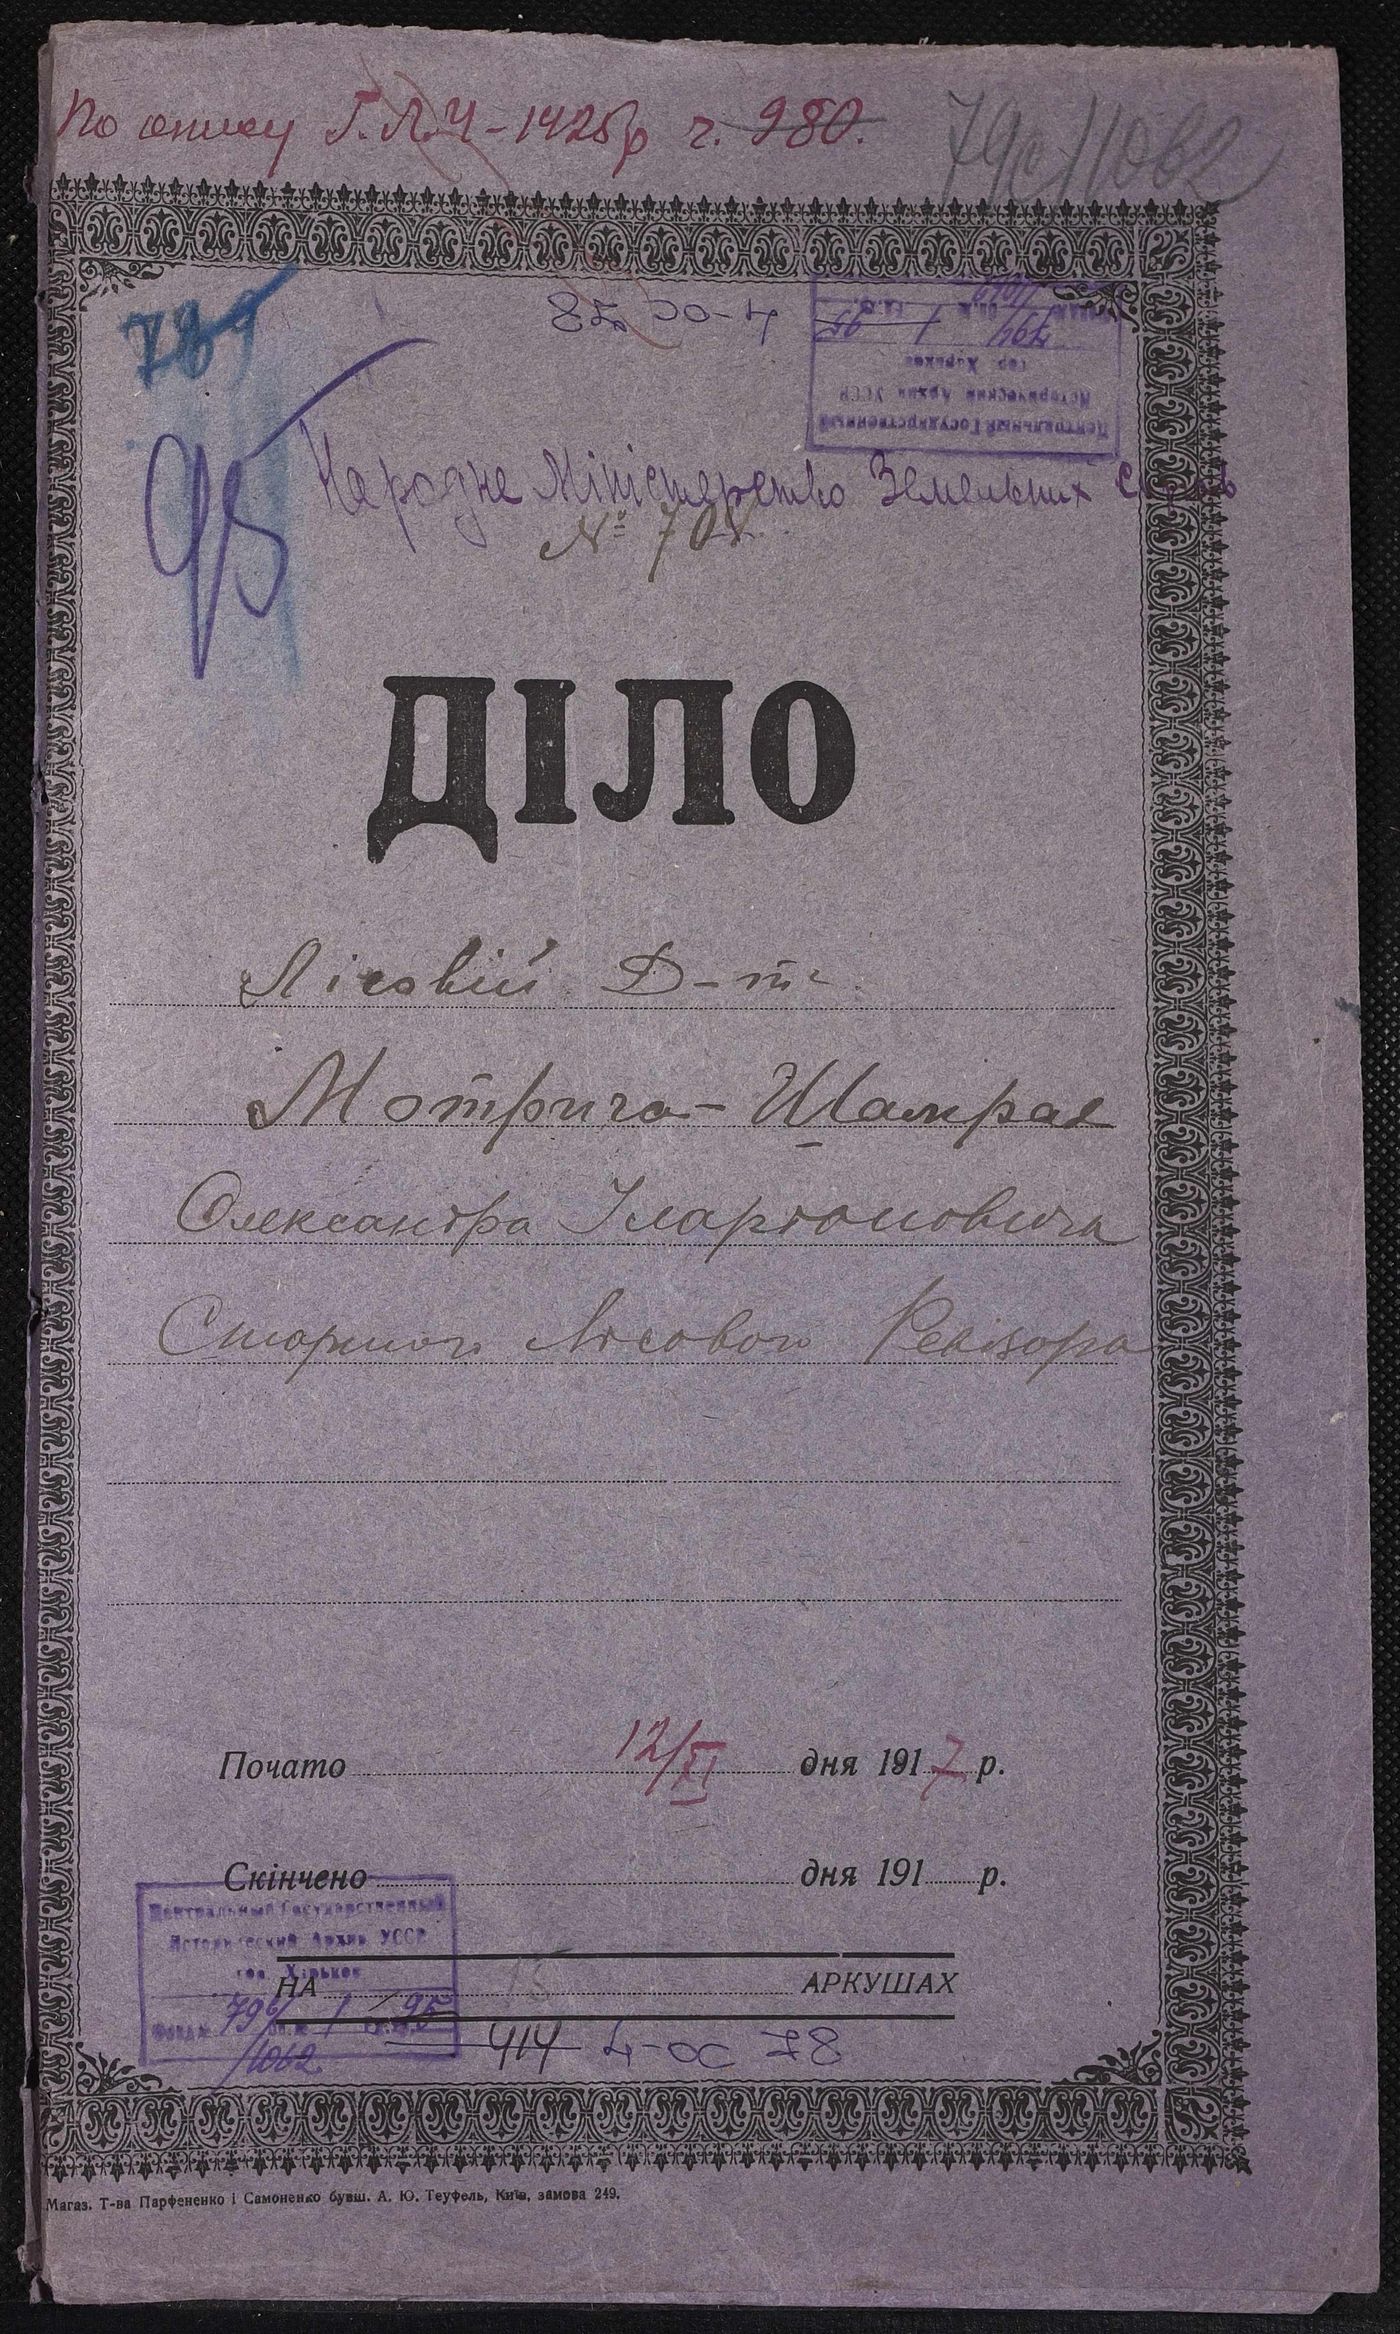 По опису
ч. 980.
79с/1062
789
95
Центральный Государственный
Исторический Архив УССР
гор Харьков
Народне Міністерство Земельних Справ
№ 708
ДІЛО
Лісовий Д-т
Мотрича-Шамрая
Олександра Іларіоновича
Старшого Лісового Ревізора
Почато 12/XI дня 1917 р.
Скінчено дня 191 р.
Центральный Государственный
Исторический Архив УССР
гор Харьков
НА 15 АРКУШАХ
Фонд № 796/1062 оп. № 1 ед. хр. 95
414 4-ОС 78
Магаз. Т-ва Парфененко і Самоненко бувш. А. Ю. Теуфель, Київ, замова 249.